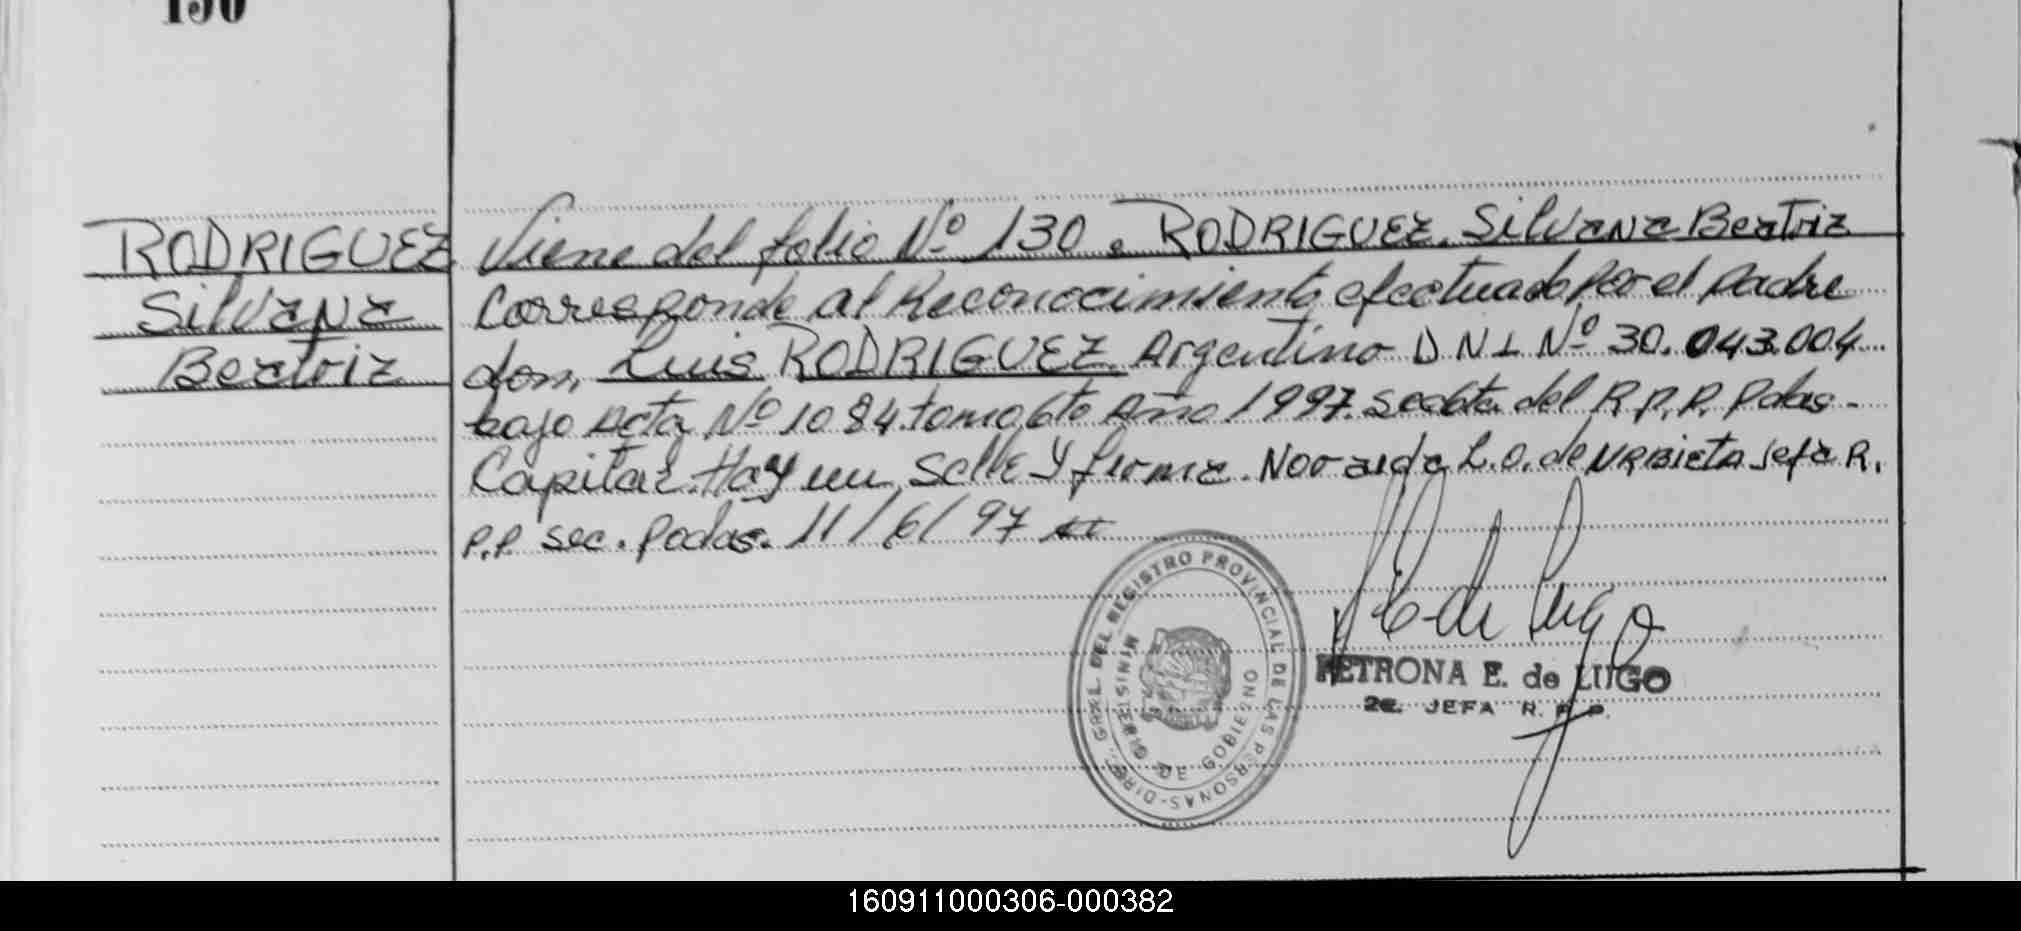 RODRIGUEZ
Silvana
Beatriz
Viene del folio Nº 130. RODRIGUEZ, Silvana Beatriz
Corresponde al Reconocimiento efectuado por el padre
don, Luis RODRIGUEZ Argentino D N I Nº 30.043.004
bajo Acta Nº 1084 tomo 6to Año 1997. del R.P.P. Pdas-
Capital. Hay un Sello y firma. L.O. de URBIETA Jefa R.
P.P. sec. Podas. 11/6/97
DIREC. GRAL. DEL REGISTRO PROVINCIAL DE LAS PERSONAS-
MINISTERIO DE GOBIERNO
PETRONA E. de LUGO
2a. JEFA R. P. P.
160911000306-000382